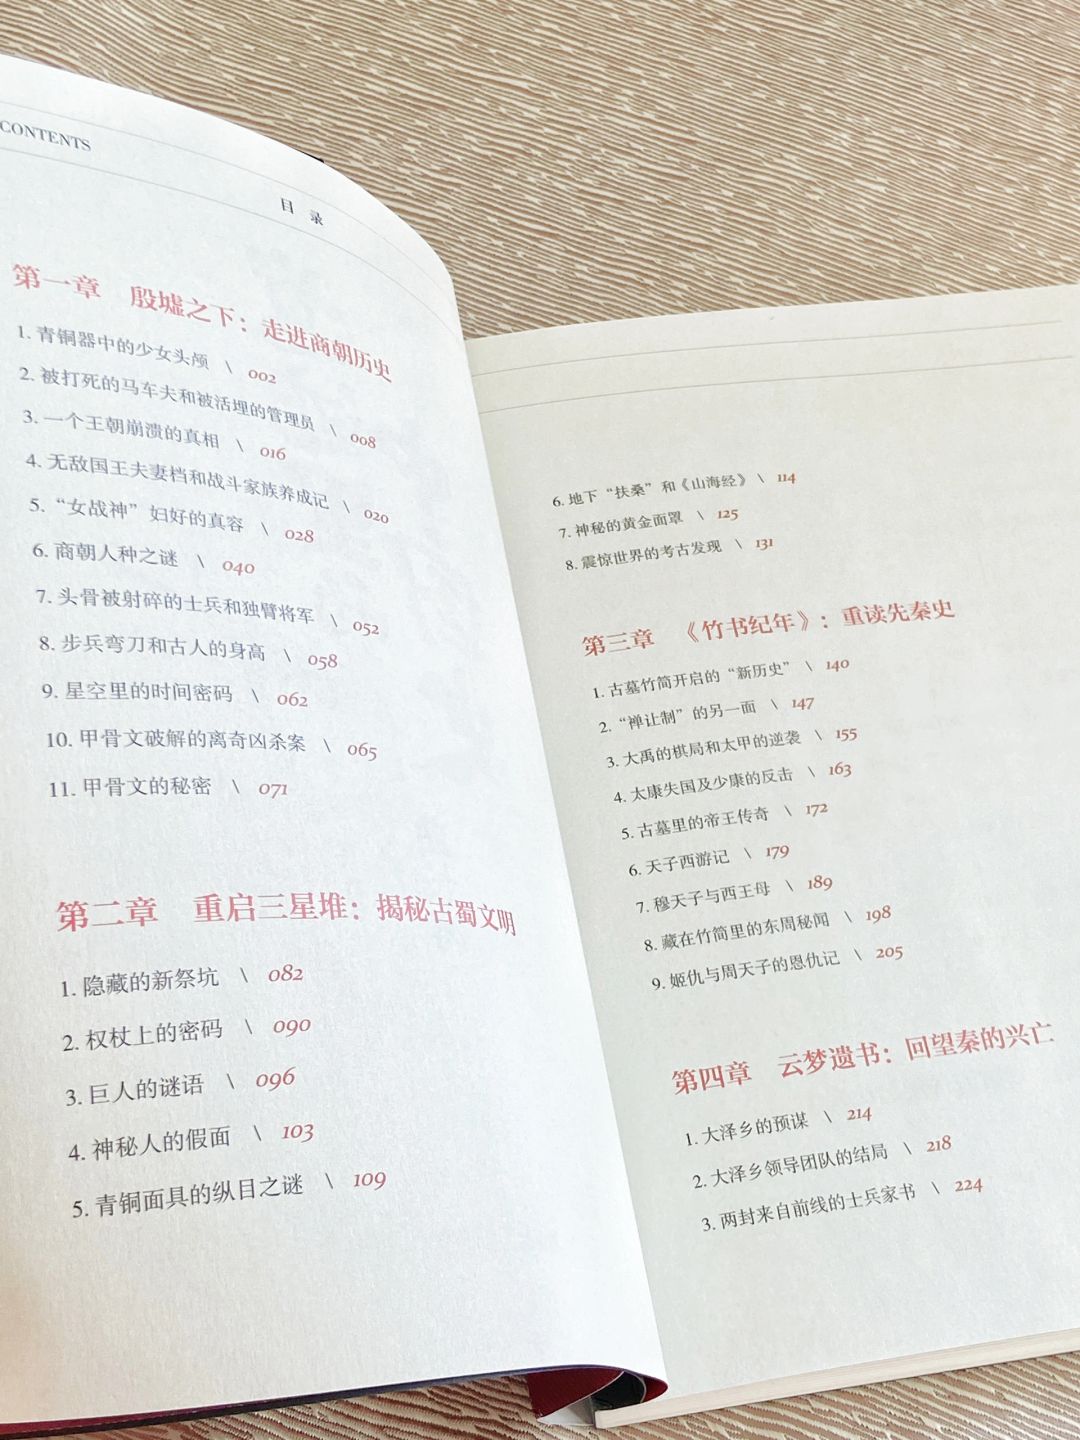 CONTENTS
目 录
第一章 殷墟之下：走进商朝历史
1. 青铜器中的少女头颅 \ 002
2. 被打死的马车夫和被活埋的管理员 \ 008
3. 一个王朝崩溃的真相 \ 016
4. 无敌国王夫妻档和战斗家族养成记 \ 020
5. “女战神”妇好的真容 \ 028
6. 商朝人种之谜 \ 040
7. 头骨被射碎的士兵和独臂将军 \ 052
8. 步兵弯刀和古人的身高 \ 058
9. 星空里的时间密码 \ 062
10. 甲骨文破解的离奇凶杀案 \ 065
11. 甲骨文的秘密 \ 071
第二章 重启三星堆：揭秘古蜀文明
1. 隐藏的新祭坑 \ 082
2. 权杖上的密码 \ 090
3. 巨人的谜语 \ 096
4. 神秘人的假面 \ 103
5. 青铜面具的纵目之谜 \ 109
6. 地下“扶桑”和《山海经》 \ 114
7. 神秘的黄金面罩 \ 125
8. 震惊世界的考古发现 \ 131
第三章 《竹书纪年》：重读先秦史
1. 古墓竹简开启的“新历史” \ 140
2. “禅让制”的另一面 \ 147
3. 大禹的棋局和太甲的逆袭 \ 155
4. 太康失国及少康的反击 \ 163
5. 古墓里的帝王传奇 \ 172
6. 天子西游记 \ 179
7. 穆天子与西王母 \ 189
8. 藏在竹简里的东周秘闻 \ 198
9. 姬仇与周天子的恩仇记 \ 205
第四章 云梦遗书：回望秦的兴亡
1. 大泽乡的预谋 \ 214
2. 大泽乡领导团队的结局 \ 218
3. 两封来自前线的士兵家书 \ 224